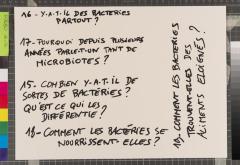 16 - Y-A-T-IL DES BACTERIES
PARTOUT ?
17 - POURQUOI DEPUIS PLUSIEURS
ANNÉES PARLE-T-ON TANT DE
MICROBIOTES ?
15 - COMBIEN Y-A-T-IL DE
SORTES DE BACTÉRIES ?
QU'EST CE QUI LES
DIFFÉRENTIE ?
18 - COMMENT LES BACTÉRIES SE
NOURRISSENT-ELLES ?
19 - COMMENT LES BACTERIES
TROUVENT-ELLES DES
ALIMENTS ELOIGNÉS ?